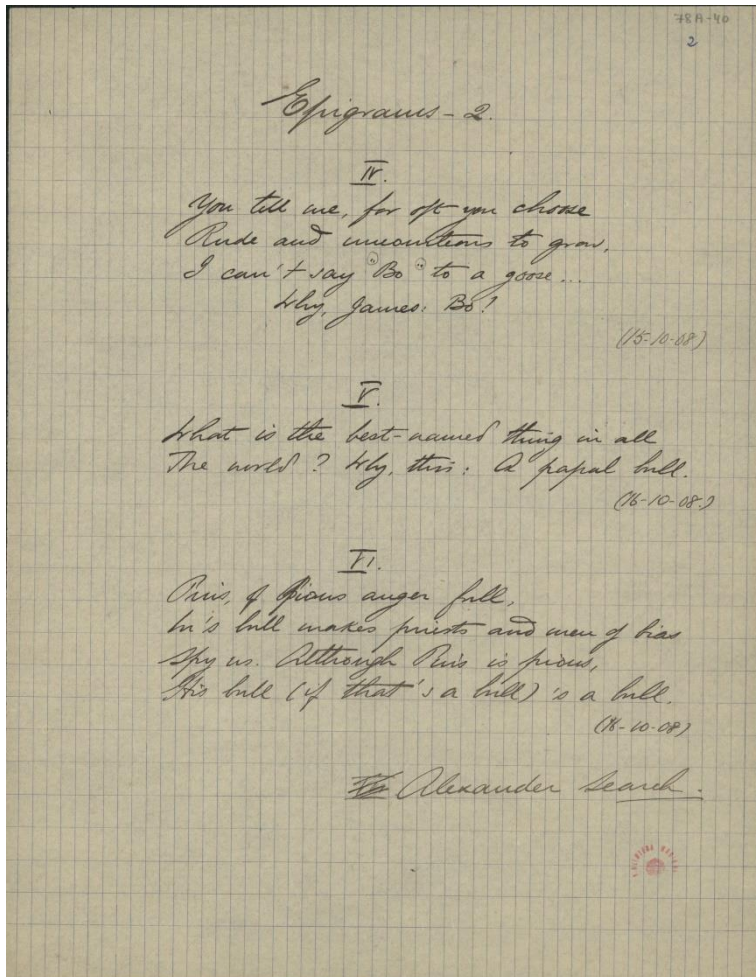 78A-40
2
Epigrams - 2.
IV.
You tell me, for oft you choose
Rude and uncourteous to grow,
I can't say "Bo" to a goose...
Why, James: Bo!
(15-10-08)
V.
What is the best-named thing in all
The world? Why, this: A papal bull.
(16-10-08.)
VI.
Pius, of pious anger full,
In's bull makes priests and men of bias
Spy us. Although Pius is pious,
His bull (if that's a bull) 's a bull.
(16-10-08)
Alexander Search.